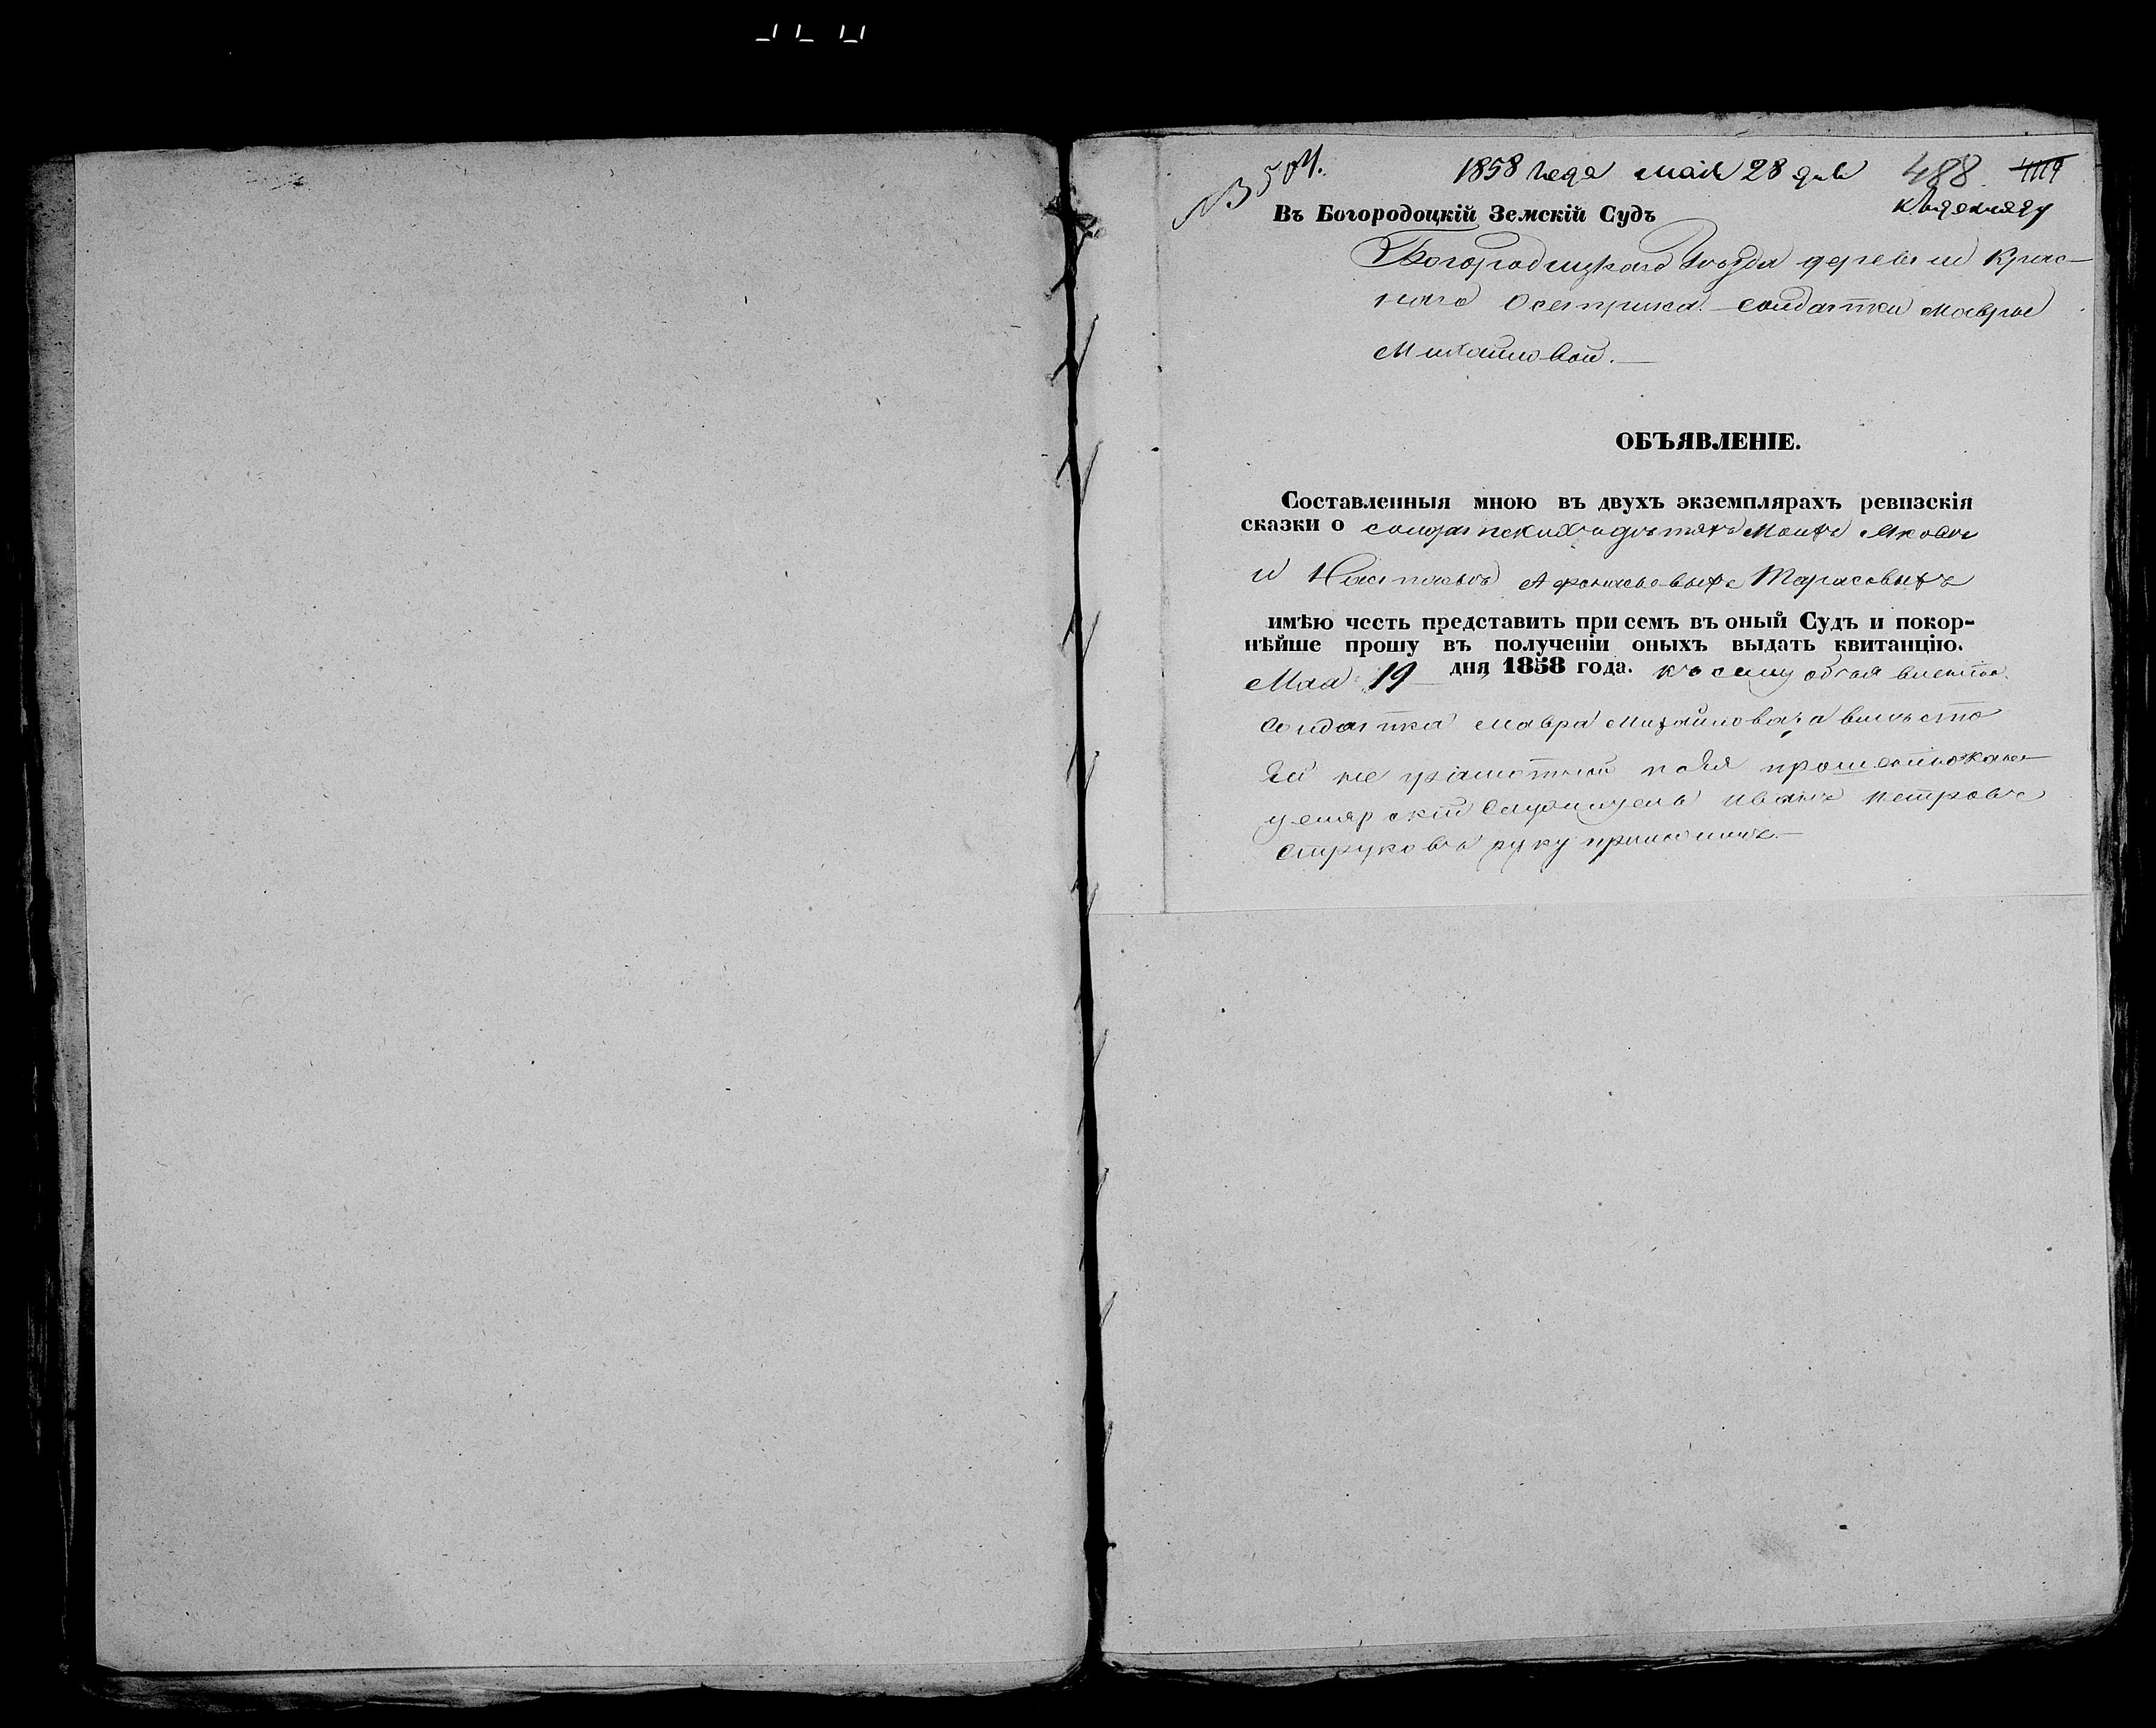 1858 года маія 28 дня 488 419
Въ Богородоцкій Земскій Судъ
Богородицкаго Уѣзда деревни Крас-
наго Осетрика солдатки Мавры
Михайловой.
ОБЪЯВЛЕНІЕ.
Составленныя мною въ двухъ экземплярахъ ревизскія
сказки о солдатскихъ дѣтяхъ моихъ Яковѣ
и Настасьѣ Афонасьевыхъ Тарасовыхъ
имѣю честь представить при семъ въ оный Судъ и покор-
нѣйше прошу въ полученіи оныхъ выдать квитанцію.
Мая 19 дня 1858 года. Къ сему объявленію
солдатка Мавра Михайлова, а вмѣсто
ей не грамотной по Ея прошенію кан-
целярскій служитель Иванъ Петровъ
Струковъ руку приложилъ.